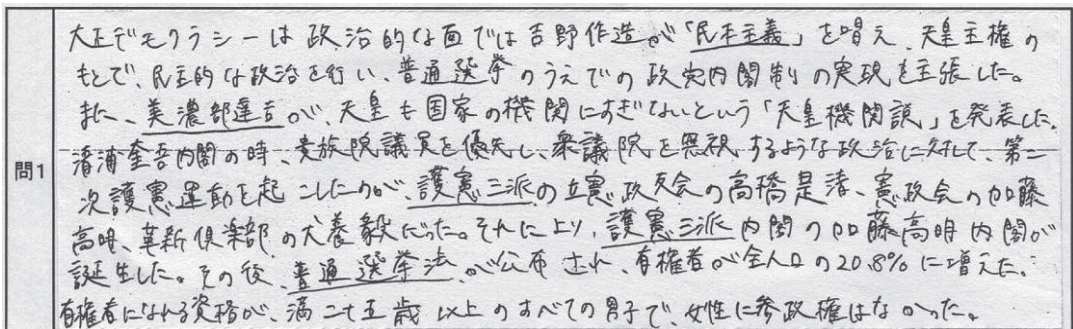 問1
大正デモクラシーは政治的な面では吉野作造が「民本主義」を唱え、天皇主権の
もとで、民主的な政治を行い、普通選挙のうえでの政党内閣制の実現を主張した。
また、美濃部達吉が、天皇も国家の機関にすぎないという「天皇機関説」を発表した。
清浦奎吾内閣の時、貴族院議員を優先し、衆議院を無視するような政治に対して、第二
次護憲運動を起こしたのが、護憲三派の立憲政友会の高橋是清、憲政会の加藤
高明、革新倶楽部の犬養毅だった。それにより、護憲三派内閣の加藤高明内閣が
誕生した。その後、普通選挙法が公布され、有権者が全人口の20.8%に増えた。
有権者になれる資格が、満二十五歳以上のすべての男子で、女性に参政権はなかった。